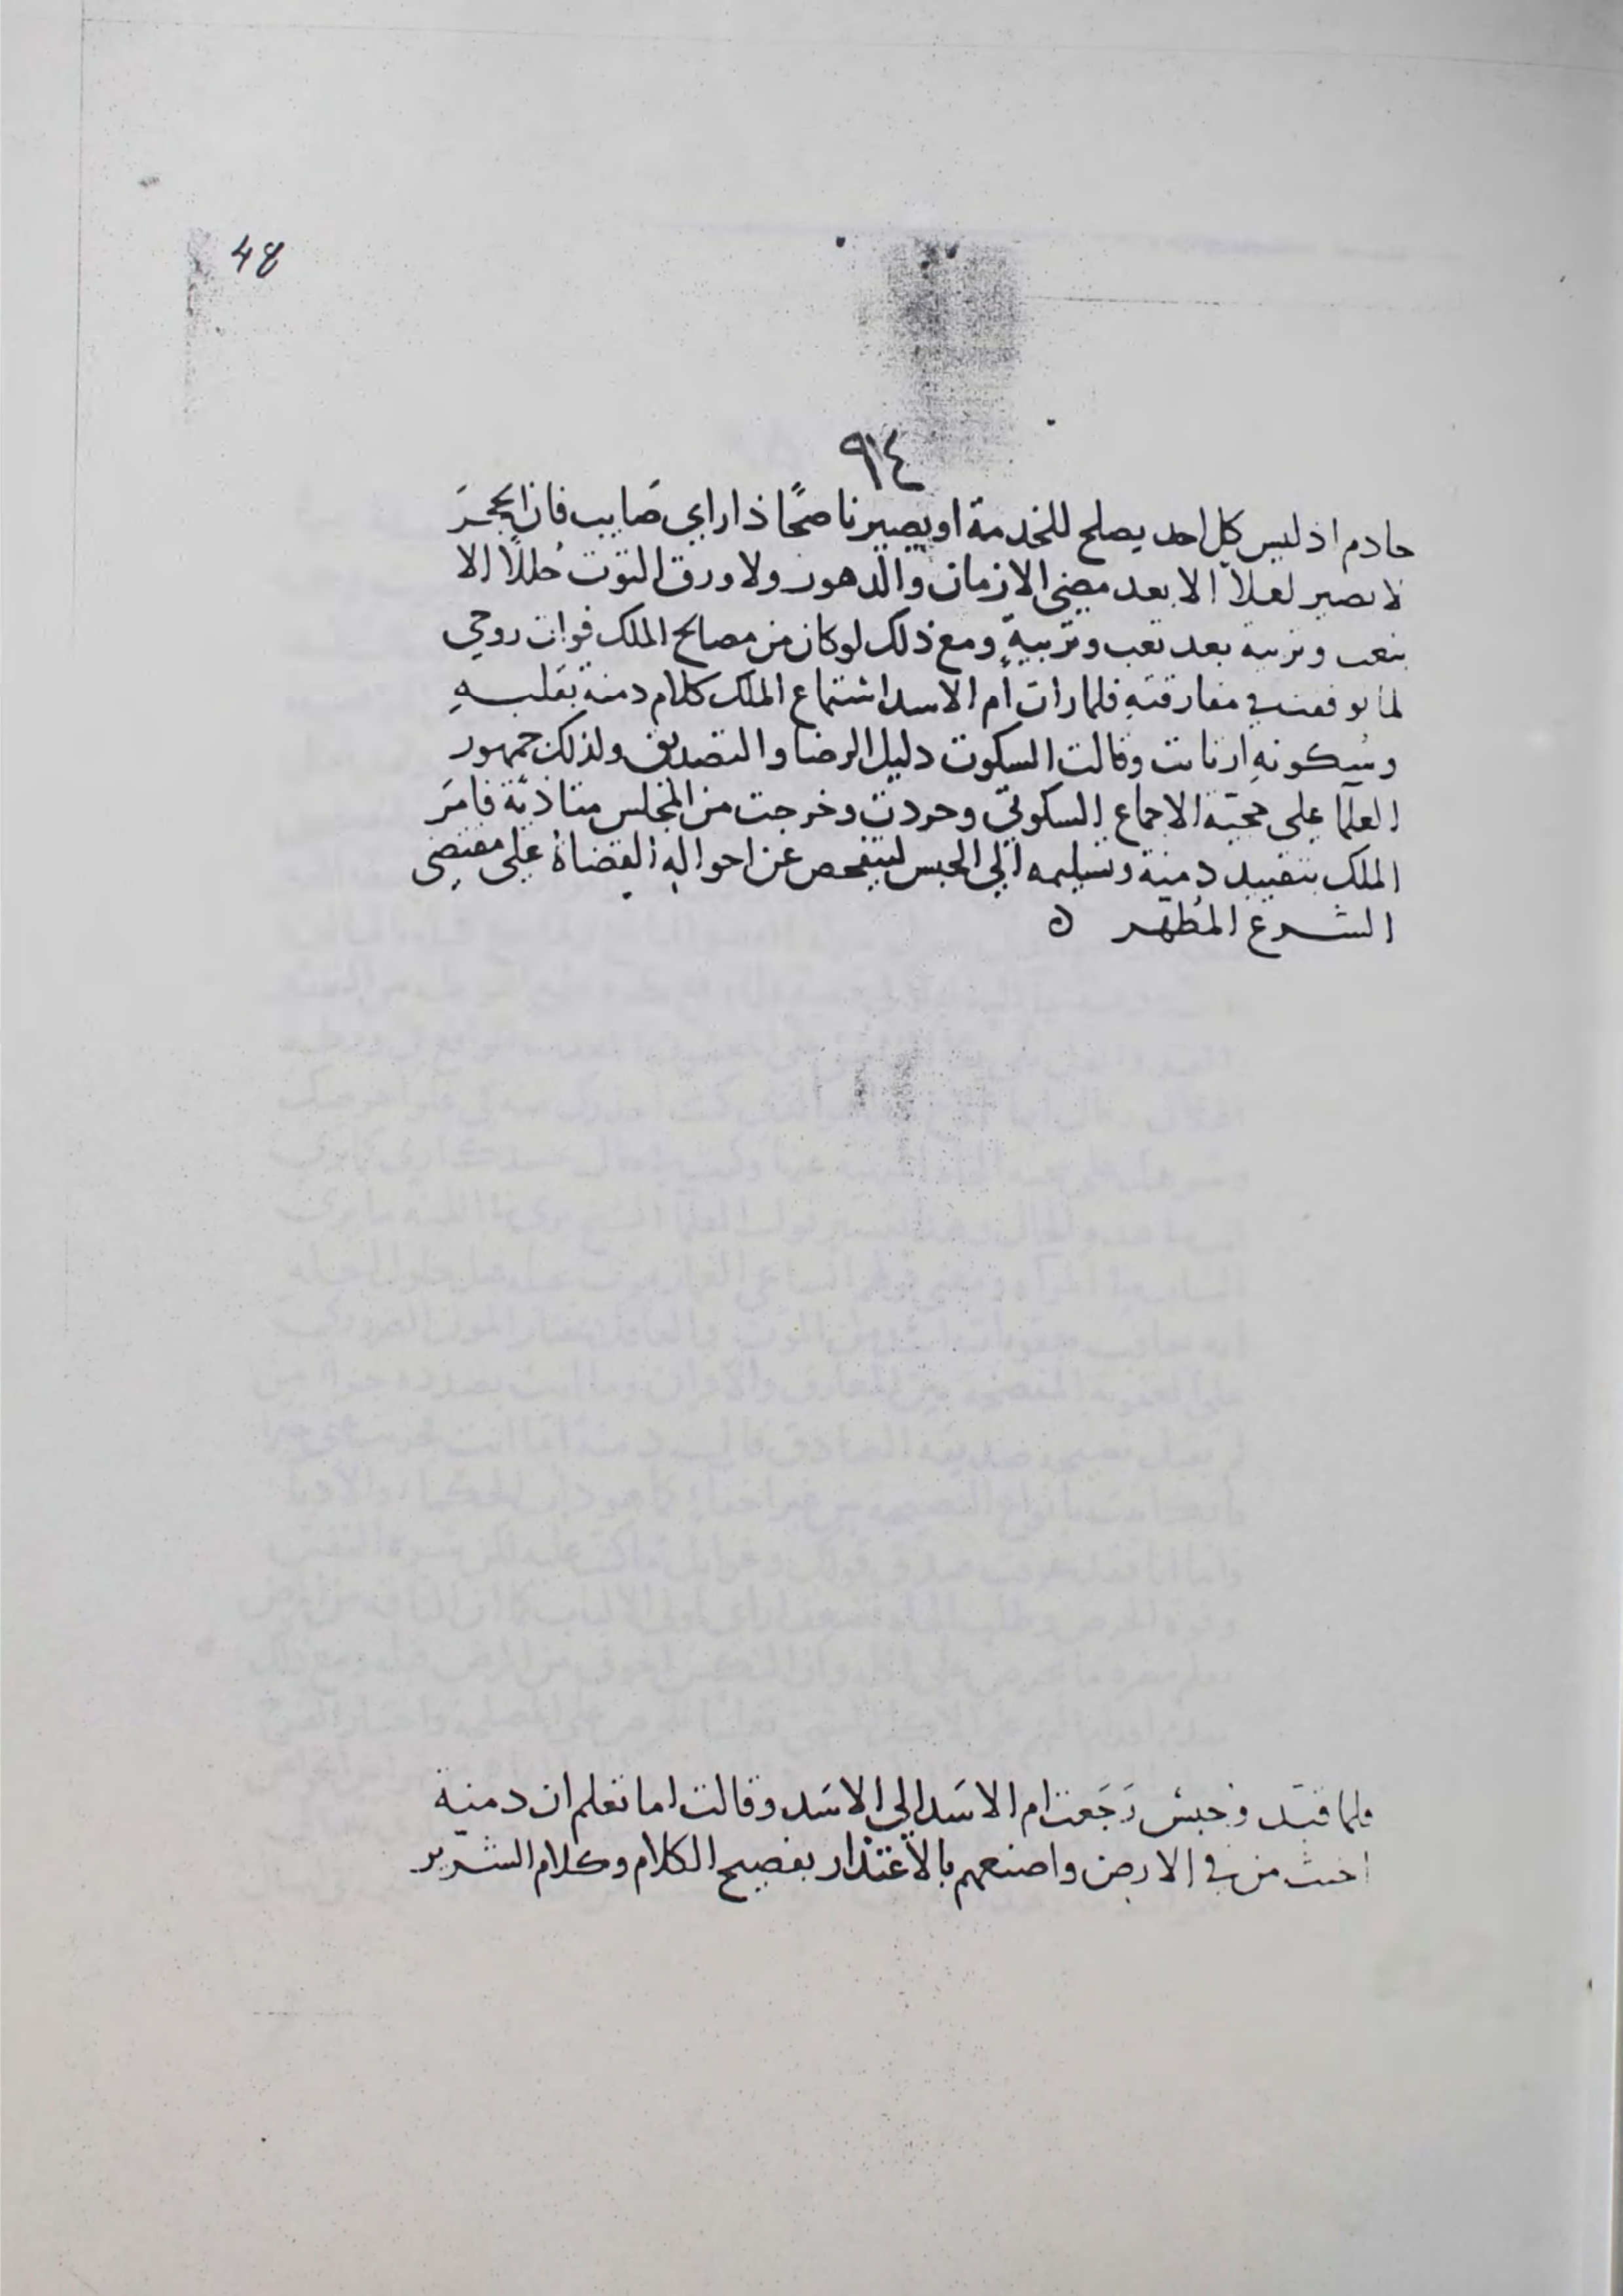 48
٩٤
خادم اذ ليس كل احد يصلح للخدمة او يصير ناصحًا ذا راي صَايب فان الحجرَ
لا يصير لعلاً الا بعد مضي الازمان والدهور ولا ورق التوت حُللاً الا
بتعب وتربية بعد تعب وتربيةٍ ومع ذلك لو كان من مصالح الملك فوات روحي
لما توقفت في مفارقتهِ فلما رات ام الاسد استماع الملك كلام دمنة بقلبهِ
وسُكوتهِ ارتابت وقالت السكوت دليل الرضا والتصديق ولذلك جمهور
العلمآ على حجيّة الاجماع السكوتي وحردت وخرجت من المجلس متاذيّة فامرَ
الملك بتقييد دمنة وتسليمه الي الحبس ليتفحص عن احوالهِ القضاة على مقتضى
الشرع المُطهّر ٥
فلما قيّد وحبسَ رَجَعت ام الاسَد الي الاسَد وقالت اما تعلم ان دمنة
اخبث من في الارض واصنعهم بالاعتذار بفصيح الكلام وكلام الشرير